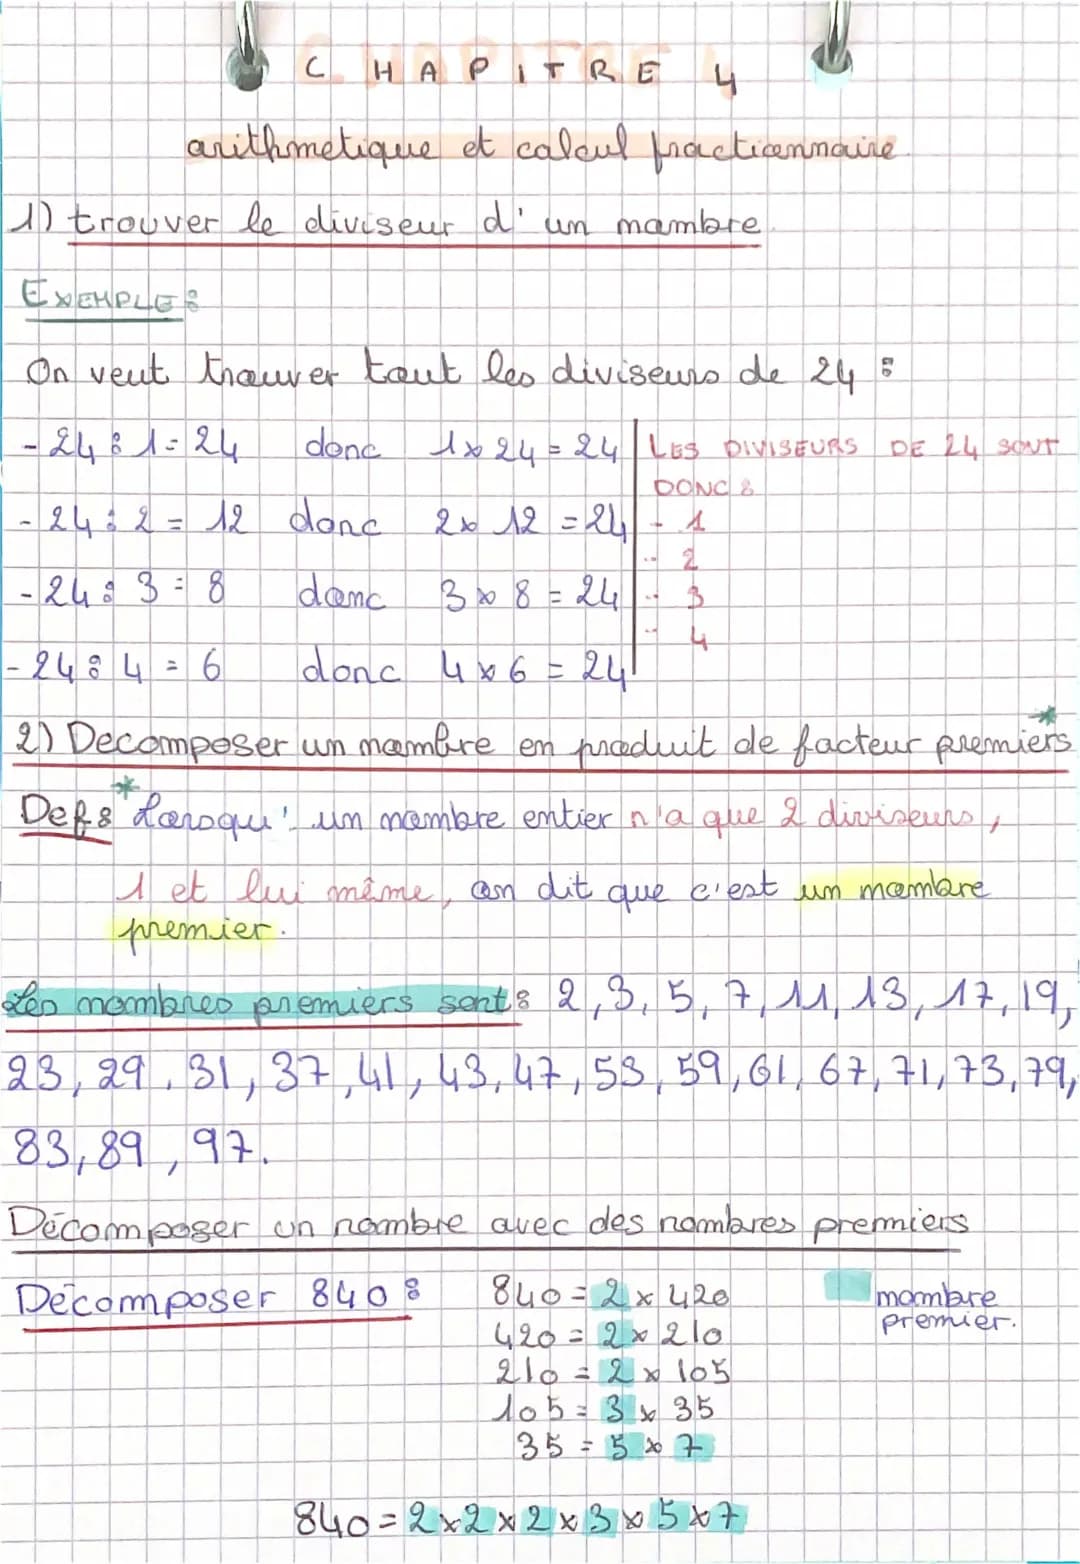 CHAPITRE 4
arithmetique et calcul fractionnaire
1) trouver le diviseur d'un nombre.
EXEMPLE :
On veut trouver tout les diviseurs de 24 :
- 24 : 1 = 24 donc 1 x 24 = 24
- 24 : 2 = 12 donc 2 x 12 = 24
- 24 : 3 = 8 donc 3 x 8 = 24
- 24 : 4 = 6 donc 4 x 6 = 24
LES DIVISEURS DE 24 SONT
DONC :
- 1
- 2
- 3
- 4
2) Decomposer un nombre en produit de facteur premiers*
Def :* Lorsqu'un nombre entier n'a que 2 diviseurs,
1 et lui même, on dit que c'est un nombre
premier.
Les nombres premiers sont : 2, 3, 5, 7, 11, 13, 17, 19,
23, 29, 31, 37, 41, 43, 47, 53, 59, 61, 67, 71, 73, 79,
83, 89, 97.
Décomposer un nombre avec des nombres premiers
Décomposer 840 :
840 = 2 x 420
420 = 2 x 210
210 = 2 x 105
105 = 3 x 35
35 = 5 x 7
nombre
premier.
840 = 2 x 2 x 2 x 3 x 5 x 7